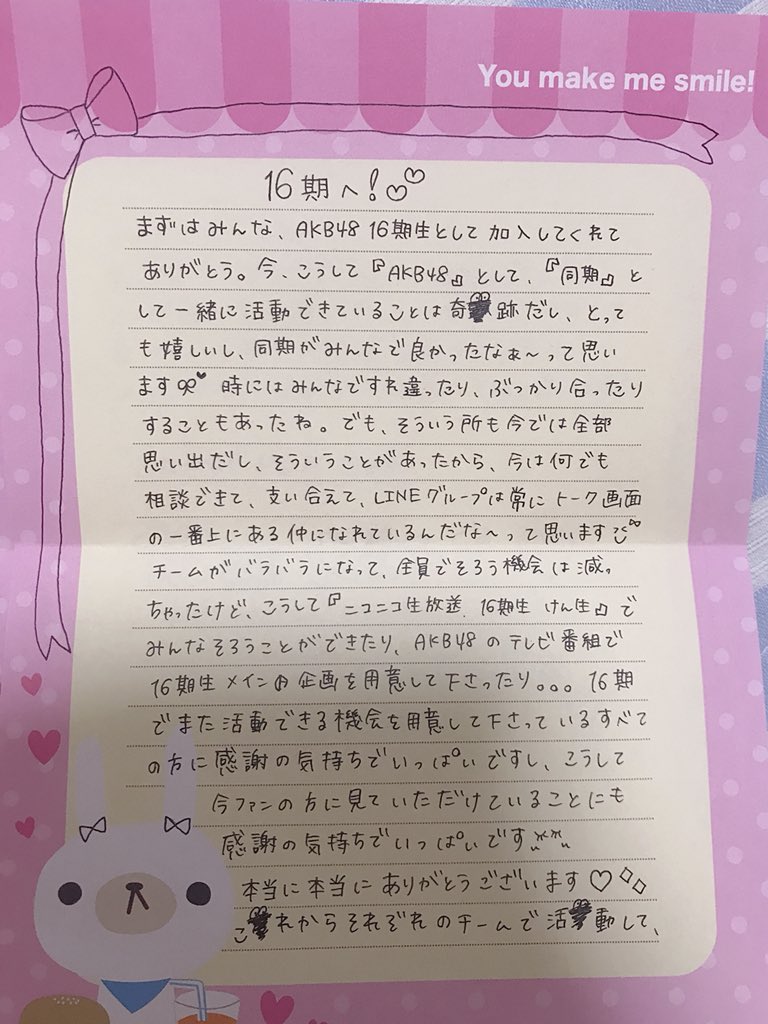 You make me smile!
16期へ!♡♡
まずはみんな、AKB48 16期生として加入してくれて
ありがとう。今、こうして『AKB48』として、『同期』と
して一緒に活動できていることは奇跡だし、とって
も嬉しいし、同期がみんなで良かったなぁ〜って思い
ます 時にはみんなですれ違ったり、ぶつかり合ったり
することもあったね。でも、そういう所も今では全部
思い出だし、そういうことがあったから、今は何でも
相談できて、支い合えて、LINEグループは常にトーク画面
の一番上にある仲になれているんだな〜って思います
チームがバラバラになって、全員でそろう機会は減っ
ちゃったけど、こうして『ニコニコ生放送 16期生 けん生』で
みんなそろうことができたり、AKB48のテレビ番組で
16期生メインの企画を用意して下さったり。。。16期
でまた活動できる機会を用意して下さっているすべて
の方に感謝の気持ちでいっぱいですし、こうして
今ファンの方に見ていただけていることにも
感謝の気持ちでいっぱいです
本当に本当にありがとうございます♡◇◇
これからそれぞれのチームで活動して、